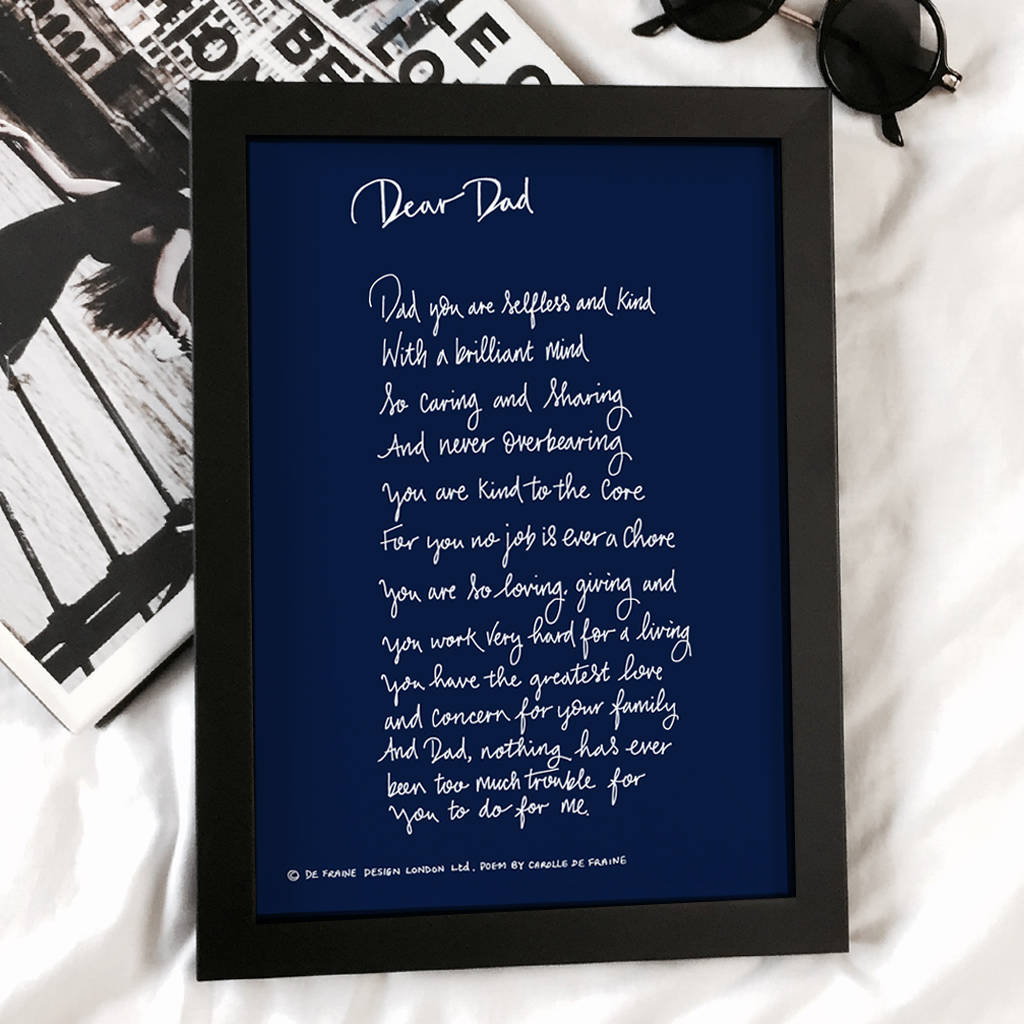 LE O
BE LO
Dear Dad
Dad you are selfless and kind
With a brilliant mind
So caring and sharing
And never overbearing
You are kind to the core
For you no job is ever a chore
You are so loving, giving and
you work very hard for a living
You have the greatest love
and concern for your family
And Dad, nothing has ever
been too much trouble for
you to do for me.
© DE FRAINE DESIGN LONDON Ltd. POEM BY CAROLLE DE FRAINE